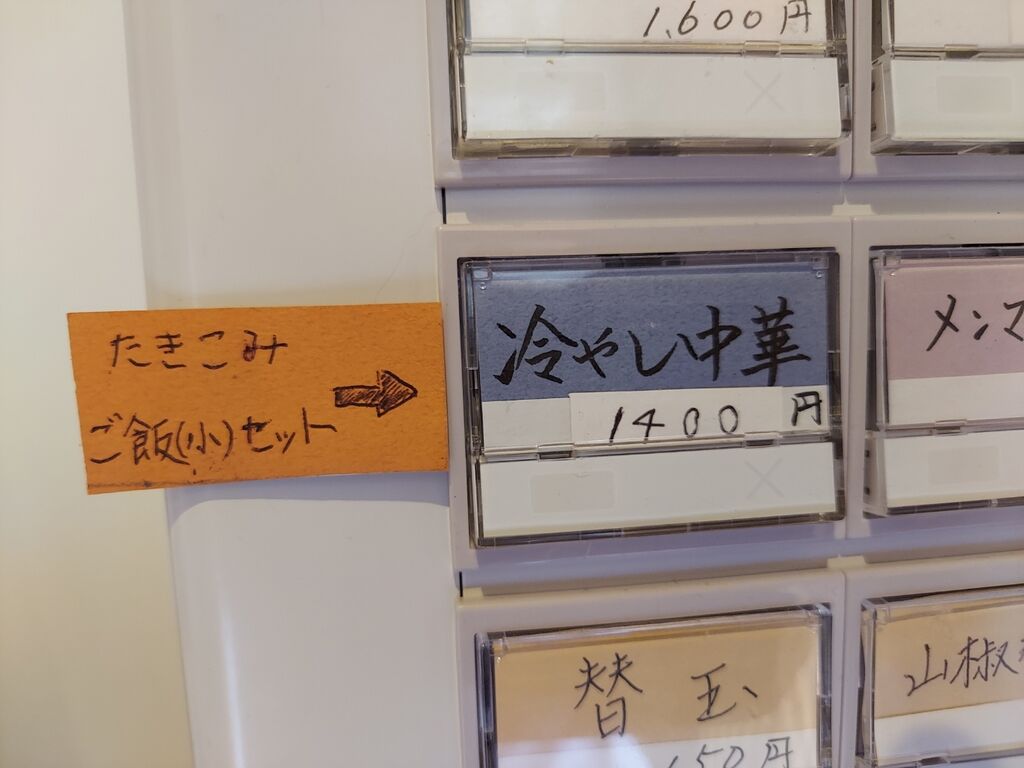 1,600円
たきこみ
ご飯(小)セット
冷やし中華
1400円
メンマ
替玉
150円
山椒